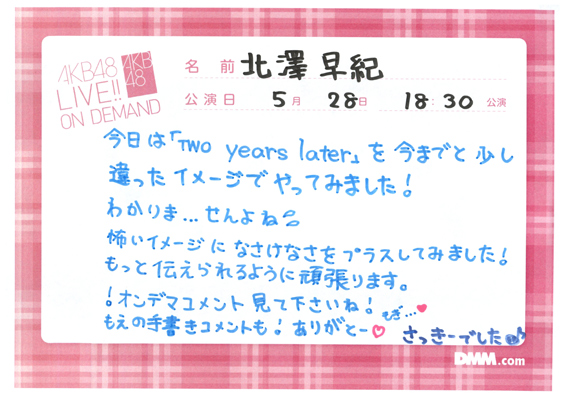 AKB48
LIVE!!
ON DEMAND
AKB
48
名 前 北澤 早紀
公演日 5月 28日 18:30 公演
今日は「Two years later」を今までと少し
違ったイメージでやってみました!
わかりま…せんよね
怖いイメージになさけなさをプラスしてみました!
もっと伝えられるように頑張ります。
!オンデマコメント見て下さいね!
もぎ…♥
もえの手書きコメントも!ありがとー♡
さっきーでした
DMM.com